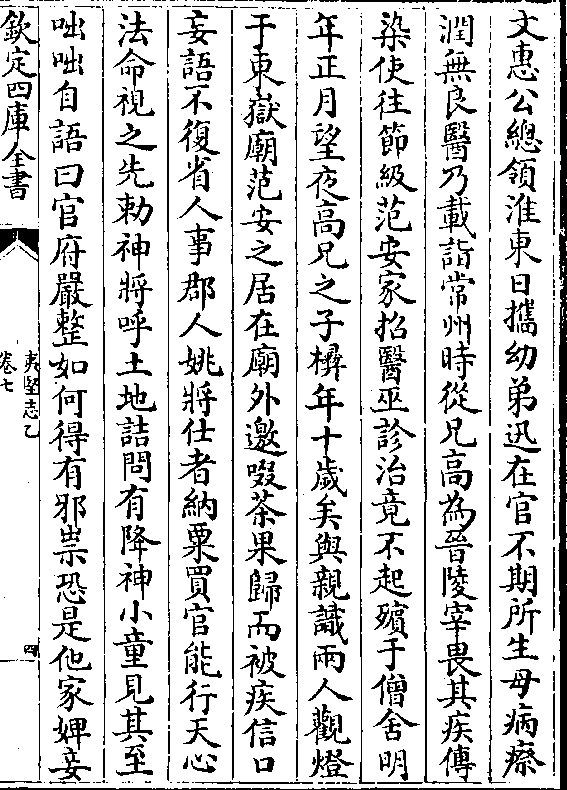 文惠公總領淮東日攜幼弟迅在官不期所生母病瘵
潤無良醫乃載詣常州時從兄高為晉陵宰畏其疾傳
染使往節級范安家招醫巫診治竟不起殯于僧舍明
年正月望夜高兄之子櫸年十歲矣與親識兩人觀燈
于東嶽廟范安之居在廟外邀啜茶果歸而被疾信口
妄語不復省人事郡人姚將仕者納粟買官能行天心
法命視之先勅神將呼土地詰問有降神小童見其至
咄咄自語曰官府嚴整如何得有邪祟恐是他家婢妾
欽定四庫全書
夷堅志乙
卷七
四